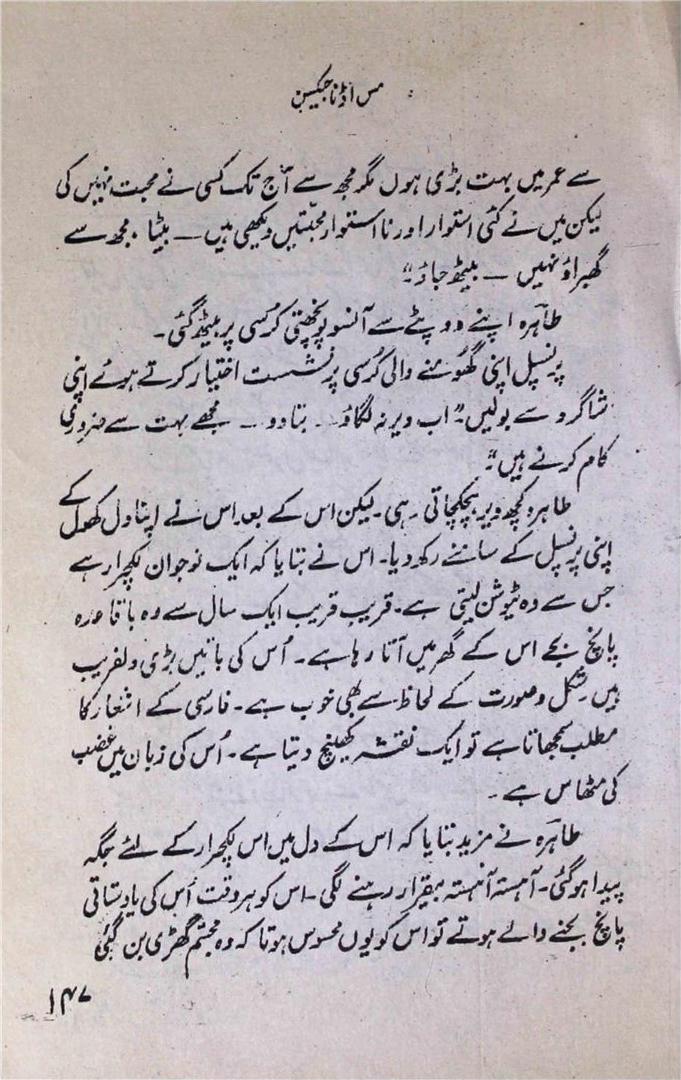 مس اڈنا جیکسن
سے عمر میں بہت بڑی ہوں مگر مجھ سے آج تک کسی نے محبت نہیں کی
لیکن میں نے کئی استوار اور نااستوار محبّتیں دیکھی ہیں ــ بیٹا، مجھ سے
گھبراؤ نہیں ــ بیٹھ جاؤ"
طاہرہ اپنے دوپٹے سے آنسو پونچھتی کرسی پر بیٹھ گئی۔
پرنسپل اپنی گھومنے والی کُرسی پر نشست اختیار کرتے ہوئے اپنی
شاگرد سے بولیں۔ "اب دیر نہ لگاؤ ــ بتا دو ــ مجھے بہت سے ضروری
کام کرنے ہیں"۔
طاہرہ کچھ دیر ہچکچاتی رہی۔ لیکن اس کے بعد اس نے اپنا دل کھول کے
اپنی پرنسپل کے سامنے رکھ دیا۔ اس نے بتایا کہ ایک نوجوان لکچرار ہے
جس سے وہ ٹیوشن لیتی ہے۔ قریب قریب ایک سال سے وہ باقاعدہ
پانچ بجے اس کے گھر میں آتا رہا ہے۔ اُس کی باتیں بڑی دلفریب
ہیں۔ شکل و صورت کے لحاظ سے بھی خوب ہے۔ فارسی کے اشعار کا
مطلب سمجھاتا ہے تو ایک نقشہ کھینچ دیتا ہے۔ اُس کی زبان میں غضب
کی مٹھاس ہے۔
طاہرہ نے مزید بتایا کہ اس کے دل میں اس لکچرار کے لئے جگہ
پیدا ہو گئی۔ آہستہ آہستہ بیقرار رہنے لگی۔ اس کو ہر وقت اُس کی یاد ستاتی
پانچ بجنے والے ہوتے تو اس کو یوں محسوس ہوتا کہ وہ مجسّم گھڑی بن گئی
۱۴۷